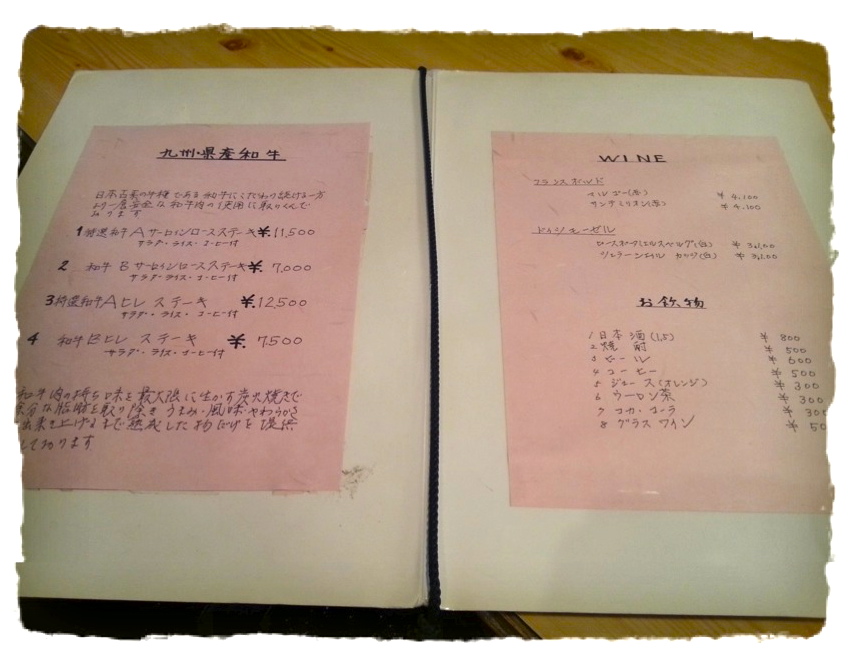 九州・県産和牛
日本古来の牛種である和牛にこだわり続ける一方
より一層安全な和牛肉の使用に取りくんで
おります
1 特選和牛 A サーロインロースステーキ ¥.11,500
サラダ・ライス・コーヒー付
2 和牛 B サーロインロースステーキ ¥. 7,000
サラダ・ライス・コーヒー付
3 特選和牛 A ヒレ ステーキ ¥.12,500
サラダ・ライス・コーヒー付
4 和牛 B ヒレ ステーキ ¥. 7,500
サラダ・ライス・コーヒー付
和牛肉の持ち味を最大限に生かす炭火焼きで
余分な脂肪を取り除き うまみ・風味・やわらかさ
出来を上げるまで熟成した物だけを提供
しております
WINE
フランス ボルドー
メルロー(赤) ¥ 4,100
サンテミリオン(赤) ¥ 4,100
ドイツ モーゼル
(白) ¥ 3,100
(白) ¥ 3,100
お飲物
1 日本酒(1,5) ¥ 800
2 焼酎 ¥ 500
3 ビール ¥ 600
4 コーヒー ¥ 500
5 ジュース(オレンジ) ¥ 300
6 ウーロン茶 ¥ 300
7 コカ・コーラ ¥ 300
8 グラスワイン ¥ 50